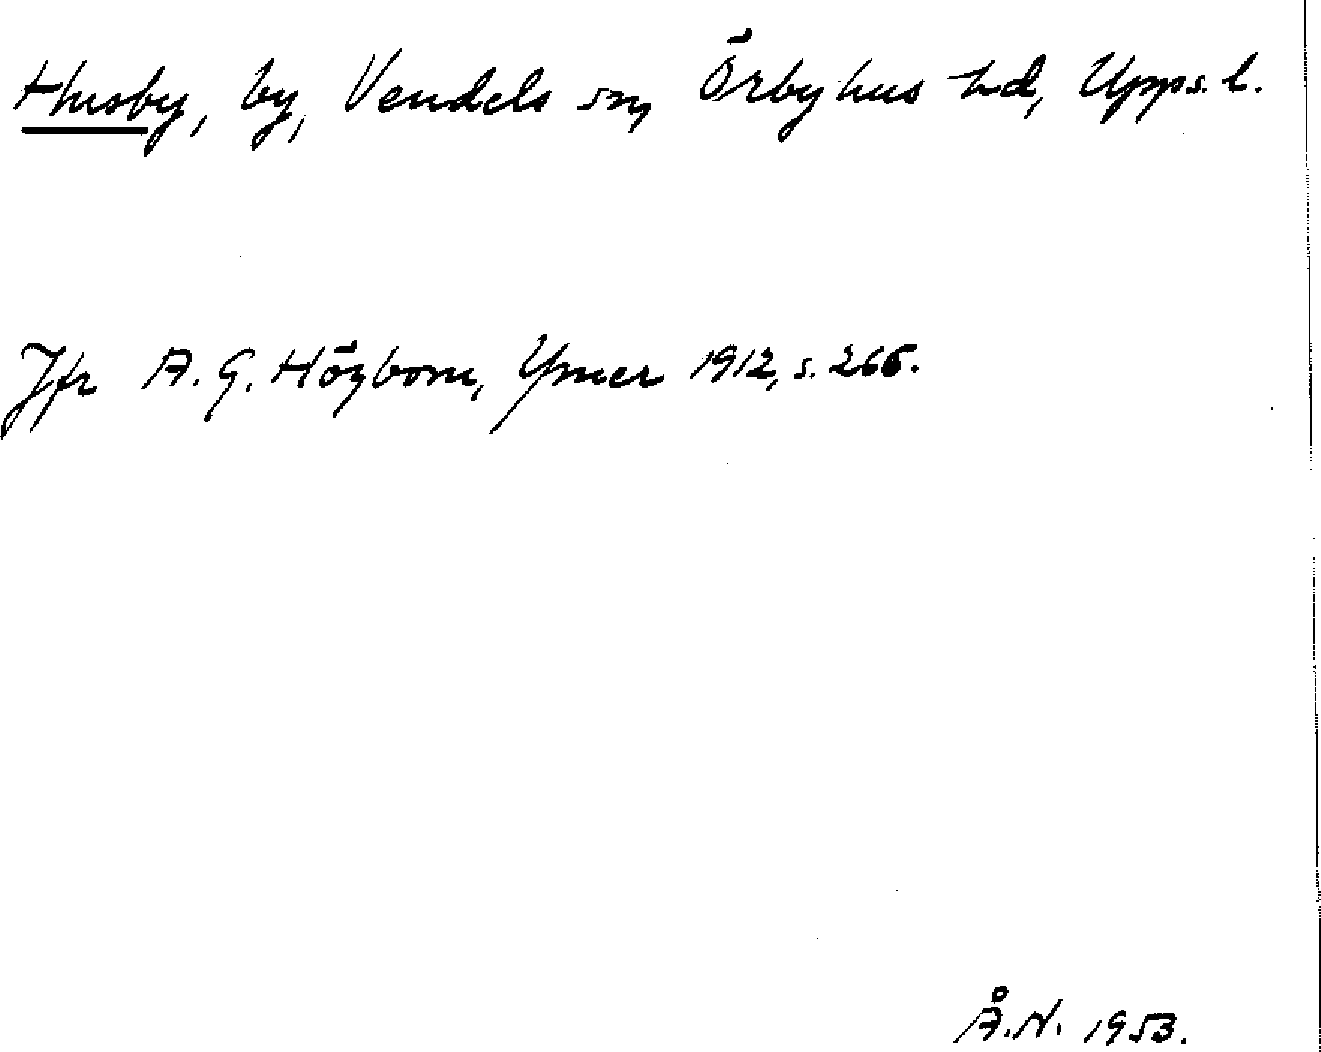 Husby, by, Vendels sn, Örbyhus hd, Upps. l.
Jfr A. G. Högbom, Ymer 1912, s. 266.
Å.N. 1953.